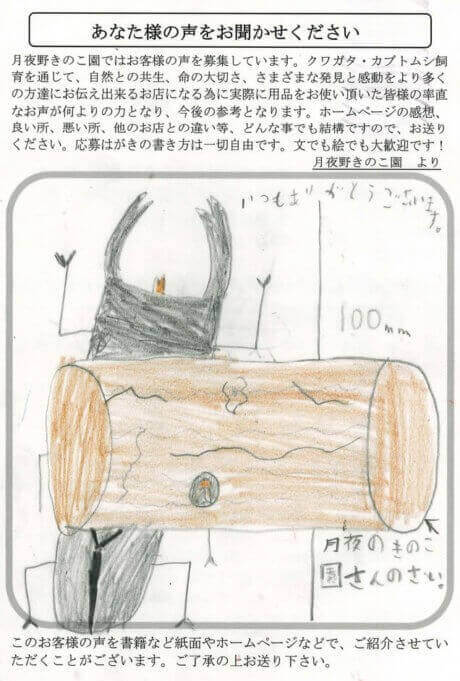 あなた様の声をお聞かせください
月夜野きのこ園ではお客様の声を募集しています。クワガタ・カブトムシ飼
育を通じて、自然との共生、命の大切さ、さまざまな発見と感動をより多く
の方達にお伝え出来るお店になる為に実際に用品をお使い頂いた皆様の率直
なお声が何よりの力となり、今後の参考となります。ホームページの感想、
良い所、悪い所、他のお店との違い等、どんな事でも結構ですので、お送り
ください。応募はがきの書き方は一切自由です。文でも絵でも大歓迎です！
月夜野きのこ園　より
いつもありがとうございます。
100mm
月夜のきのこ
園さんのざい。
このお客様の声を書籍など紙面やホームページなどで、ご紹介させてい
ただくことがございます。ご了承の上お送り下さい。